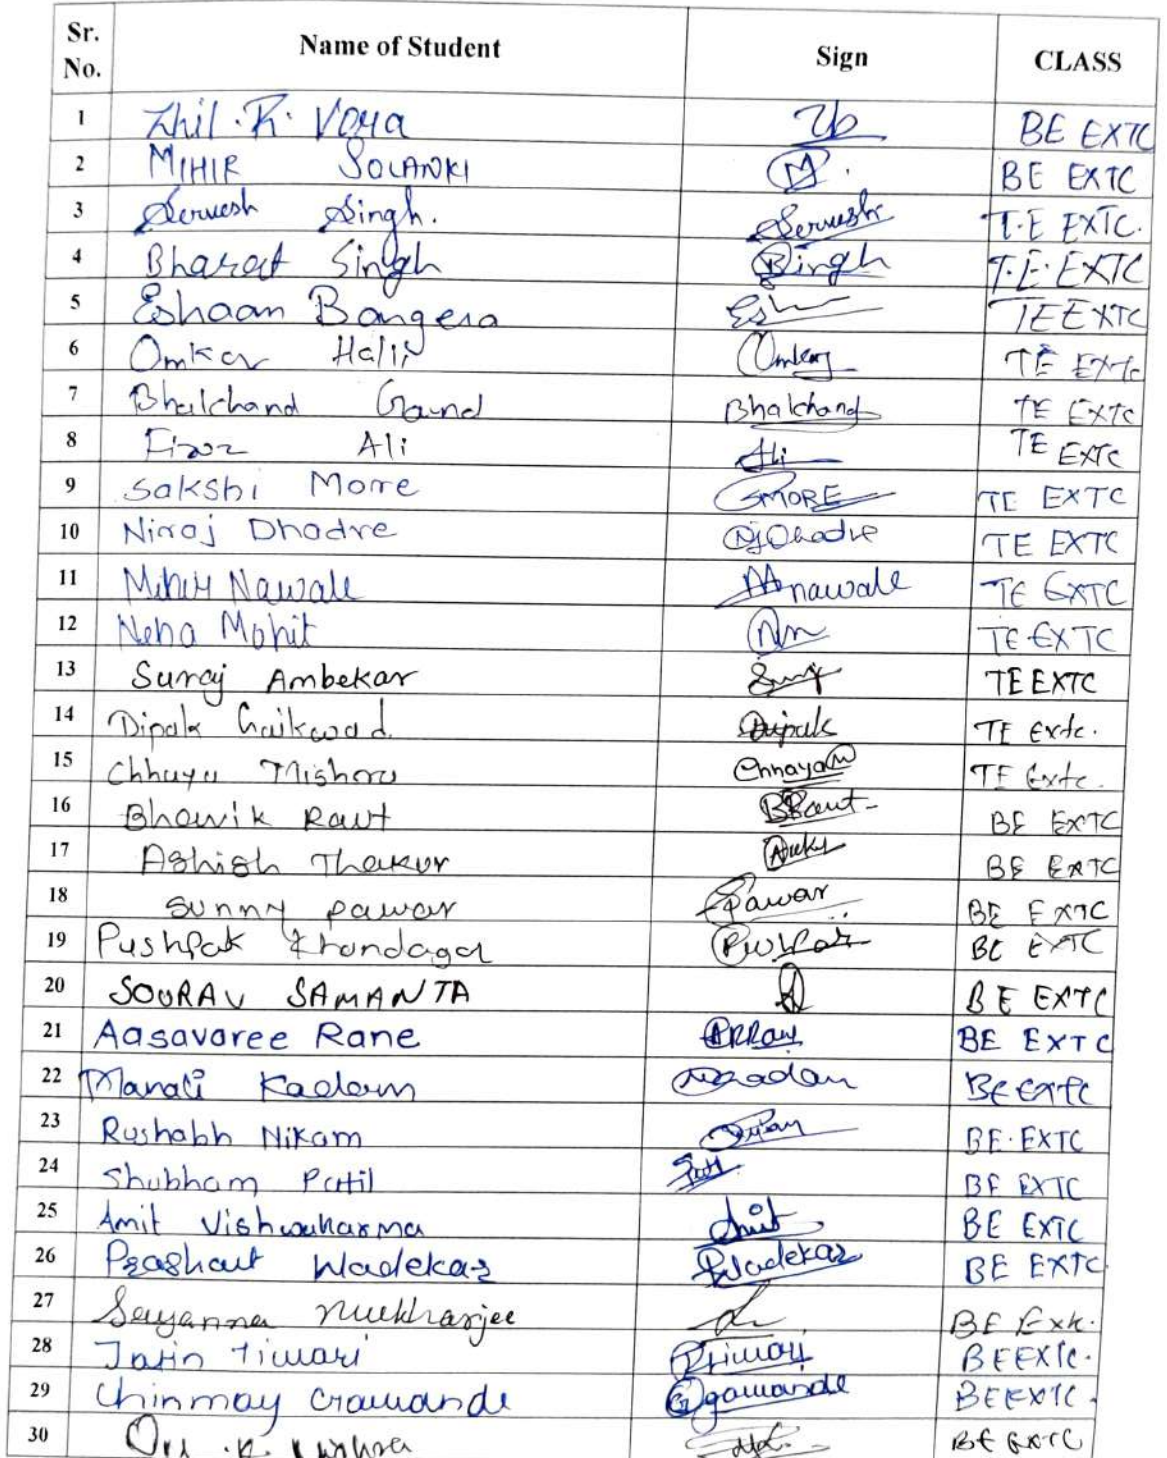 Sr. No. Name of Student Sign CLASS
1 Zhil .R. Vora BE EXTC
2 MIHIR SOLANKI M. BE EXTC
3 Servesh Singh. Servesh T.E EXTC.
4 Bharat Singh BSingh T.E. EXTC
5 Eshaan Bangera Esh TE EXTC
6 Omkar Halis Omkar TE EXTC
7 Bhalchand Gaund Bhalchand TE EXTC
8 Firoz Ali Ali TE EXTC
9 Sakshi More SMORE TE EXTC
10 Niraj Dhadve NjDhadve TE EXTC
11 Mihir Nawale Mnawale TE EXTC
12 Neha Mohit Nm TE EXTC
13 Suraj Ambekar Suraj TE EXTC
14 Dipak Gaikwad Dipak TE Extc.
15 Chhaya Mishra ChhayaM TE Extc.
16 Bhavik Raut BRaut BE EXTC
17 Ashish Thakur BE EXTC
18 Sunny Pawar SPawar BE EXTC
19 Pushpak Khandagal BE EXTC
20 SOURAV SAMANTA BE EXTC
21 Aasavaree Rane ARRane BE EXTC
22 Manali Kadam Mkadam BE EXTC
23 Rushabh Nikam BE. EXTC
24 Shubham Patil BE EXTC
25 Amit Vishwakarma Amit BE EXTC
26 Prashant Wadekar PWadekar BE EXTC
27 Sayanna Mukharjee BE Extc.
28 Jatin Tiwari JTiwari BE EXTC.
29 Chinmay Gawande Cgawande BE EXTC.
30 BE EXTC